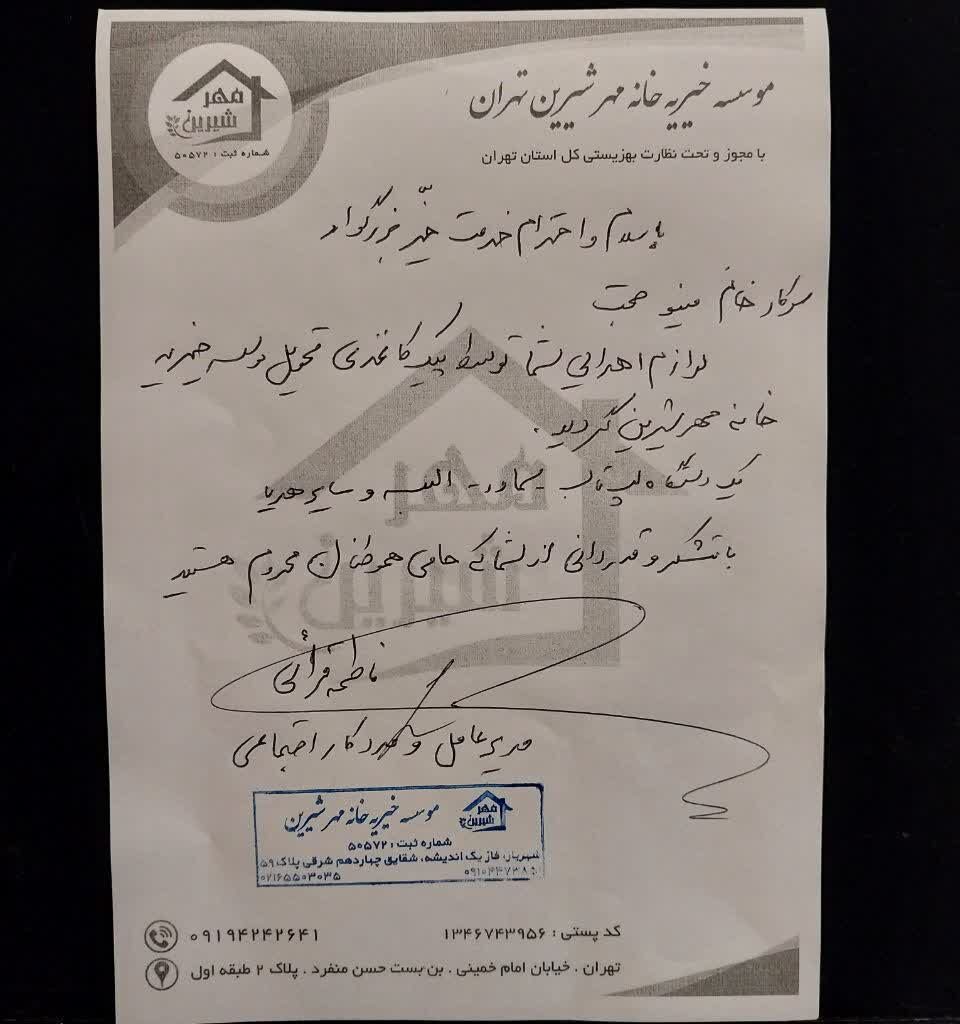 موسسه خیریه خانه مهر شیرین تهران
با مجوز و تحت نظارت بهزیستی کل استان تهران
مهر
شیرین
شماره ثبت : ۵۰۵۷۲
باسلام و احترام خدمت خیّر بزرگوار
سرکار خانم مینو محب
لوازم اهدایی شما توسط پیک کاغذی تحویل موسسه خیریه
خانه مهر شیرین گردید .
یک دستگاه لپ تاپ - سماور - البسه و سایر هدایا
با تشکر و قدردانی از شما که حامی هموطنان محروم هستید
مهر
شیرین
فاطمه قرائی
مدیر عامل و مددکار اجتماعی
مهر
شیرین
موسسه خیریه خانه مهر شیرین
شماره ثبت : ۵۰۵۷۲
شهریار، فاز یک اندیشه، شقایق چهاردهم شرقی پلاک ۵۹
۰۲۱۶۵۵۰۳۰۳۵
کد پستی : ۱۳۴۶۷۴۳۹۵۶
۰۹۱۹۴۲۴۲۶۴۱
تهران . خیابان امام خمینی . بن بست حسن منفرد . پلاک ۲ طبقه اول